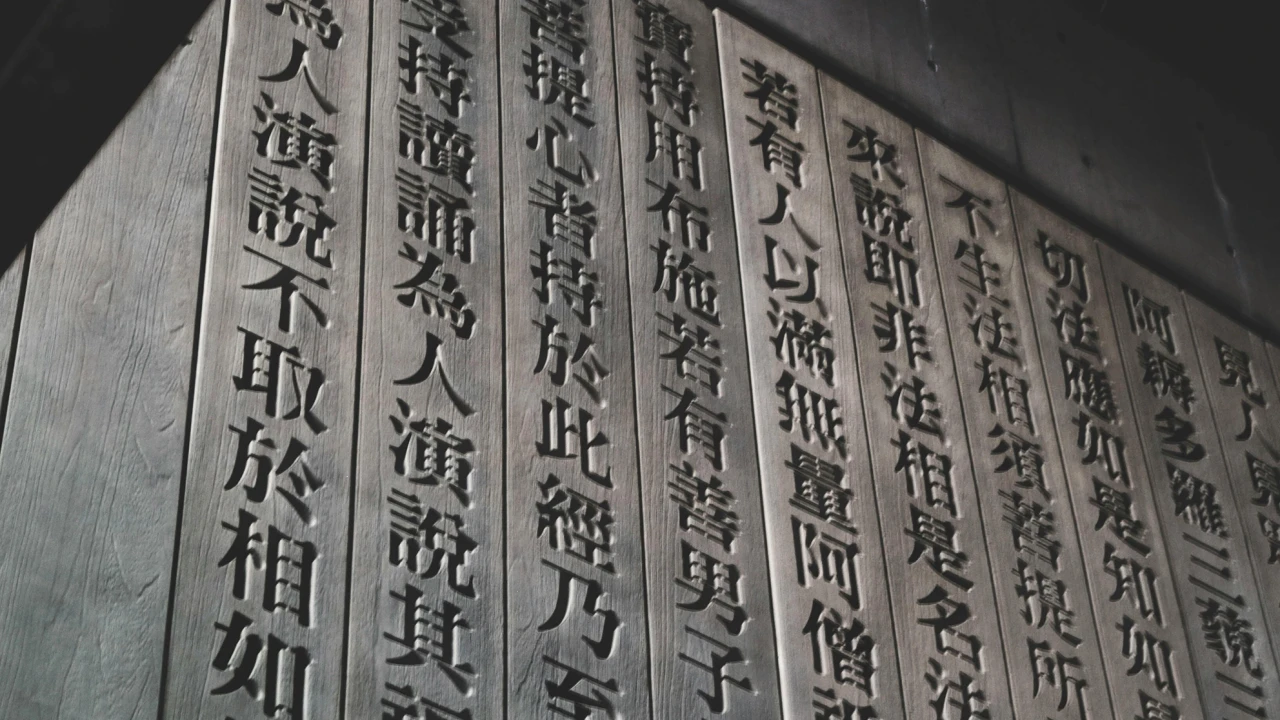 見人見
阿耨多羅三藐三
切法應如是知如是
不生法相須菩提所
來說即非法相是名法
若有人以滿無量阿僧
寶持用布施若有善男子
菩提心者持於此經乃至
受持讀誦為人演說其
為人演說不取於相如